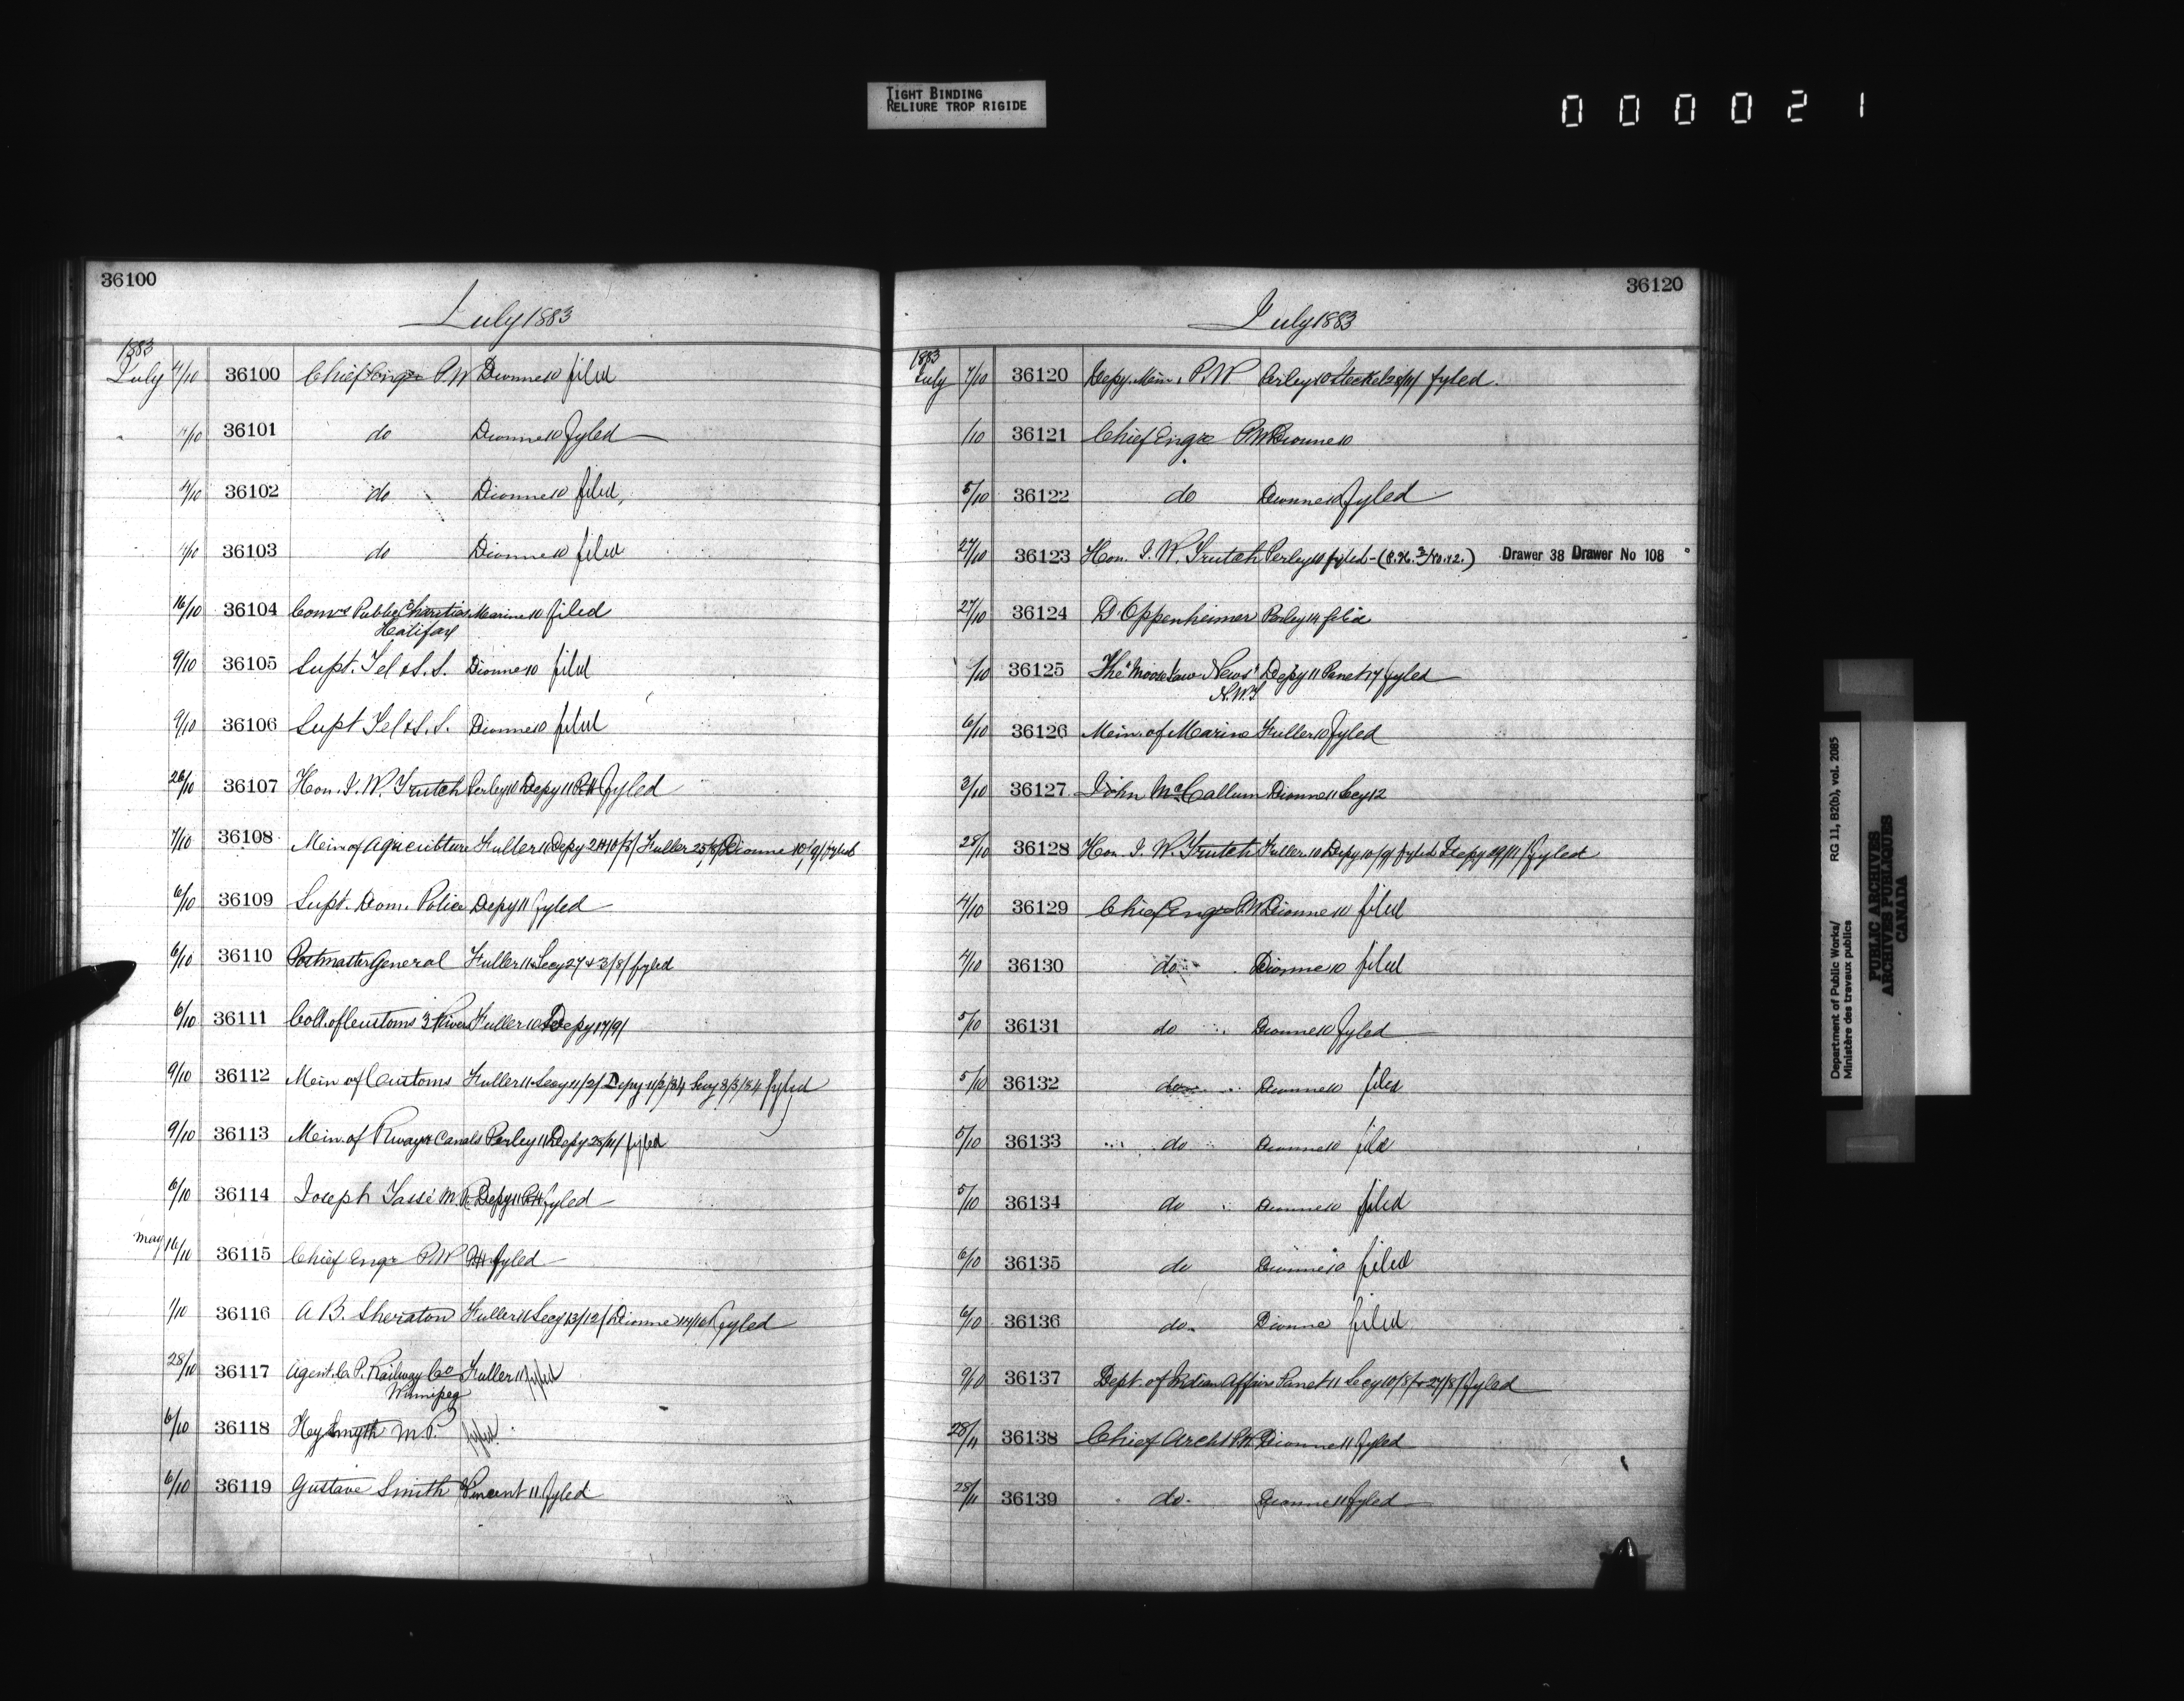 TIGHT BINDING
RELIURE TROP RIGIDE
000021
36100
July 1883
1883
July 4/10 36100 Chief Engr P.W Dionne 10 filed
4/10 36101 do Dionne 10 fyled
4/10 36102 do Dionne 10 filed
4/10 36103 do Dionne 10 filed
16/10 36104 Comrs Public Charities Marine 10 filed
Halifax
9/10 36105 Supt. Tel & S.S. Dionne 10 filed
9/10 36106 Supt Tel & S.S. Dionne 10 filed
26/10 36107 Hon. J. W. Trutch Perley 10 Depy 11 fyled
7/10 36108 Min of Agriculture Fuller 11 Depy Fuller 25/8/ Dionne 10/9/ fyled
6/10 36109 Supt. Dom. Police Depy 11 fyled
6/10 36110 Postmaster General Fuller 11 Secy 27 & 3/8/ fyled
6/10 36111 Coll. of Customs 3 Rivers Fuller 10 Depy 17/9/
9/10 36112 Min of Customs Fuller 11 Secy 11/2/ Depy 11/2/84 Secy 8/3/84 fyled
9/10 36113 Min. of Rways & Canals Perley 11 Depy 28/11/ fyled
6/10 36114 Joseph Tassé M.P. Depy 11 fyled
May 16/10 36115 Chief Engr P.W fyled
1/10 36116 A B. Sheraton Fuller 11 Secy 13/12/ Dionne fyled
28/10 36117 Agent C. P. Railway Co Fuller 11 fyled
Winnipeg
6/10 36118 Hy Smyth M.P. fyled
6/10 36119 Gustave Smith Vincent 11 fyled
36120
July 1883
1883
July 7/10 36120 Depy. Min. P.W Perley 10 Steckel 28/11/ fyled.
/10 36121 Chief Engr P.W Dionne 10
5/10 36122 do Dionne 10 fyled
27/10 36123 Hon. J. W. Trutch Perley 10 fyled Drawer 38 Drawer No 108
27/10 36124 D. Oppenheimer Perley 14 filed
/10 36125 The "Moose Jaw News" Depy 11 Panet 17 fyled
N.W.T
6/10 36126 Min. of Marine Fuller 10 fyled
3/10 36127 John McCallum Dionne 11 Secy 12
28/10 36128 Hon. J. W. Trutch Fuller 10 Depy 10/9/ fyled Depy 29/11/ fyled
4/10 36129 Chief Engr P.W Dionne 10 filed
4/10 36130 do Dionne 10 filed
5/10 36131 do Dionne 10 fyled
5/10 36132 do Dionne 10 filed
5/10 36133 do Dionne 10 filed
5/10 36134 do Dionne 10 filed
6/10 36135 do Dionne 10 filed
6/10 36136 do Dionne filed
9/10 36137 Dept. of Indian Affairs Panet 11 Secy 10/8/ & 27/8/ fyled
28/11 36138 Chief Archt P.W. Dionne 11 fyled
28/11 36139 do Dionne 11 fyled
Department of Public Works/ RG 11, B2(b), vol. 2085
Ministère des travaux publics
PUBLIC ARCHIVES
ARCHIVES PUBLIQUES
CANADA